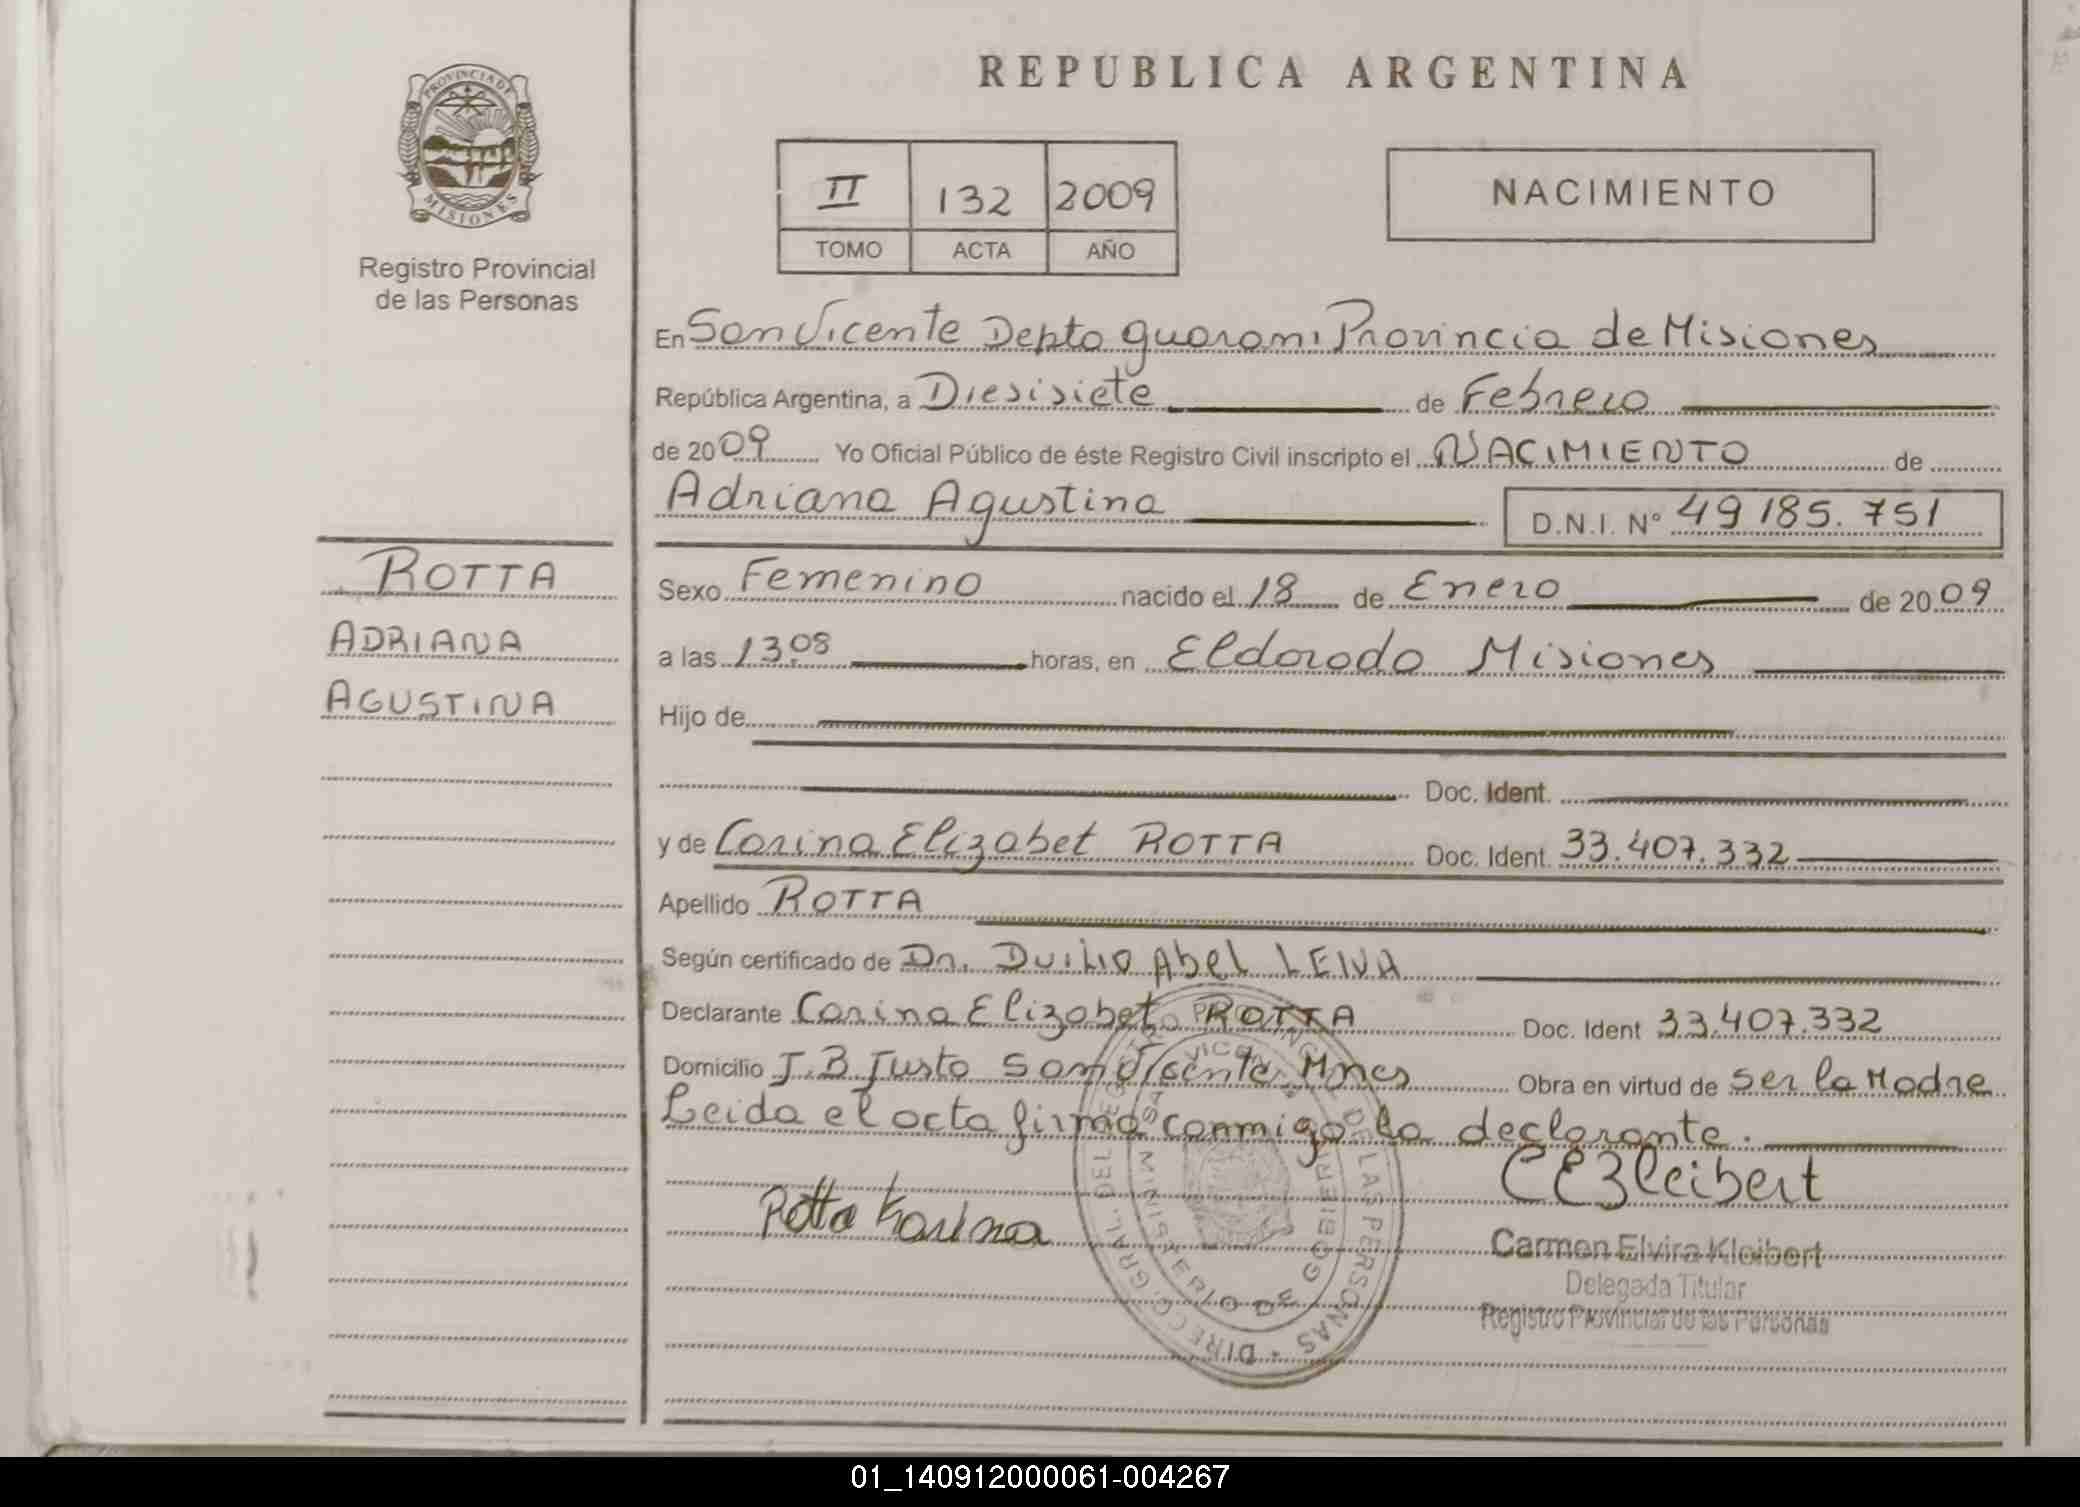 PROVINCIA DE
MISIONES
Registro Provincial
de las Personas
ROTTA
ADRIANA
AGUSTINA
REPUBLICA ARGENTINA
II 132 2009
TOMO ACTA AÑO
NACIMIENTO
En San Vicente Depto Guarani Provincia de Misiones
República Argentina, a Diesisiete de Febrero
de 2009 Yo Oficial Público de éste Registro Civil inscripto el NACIMIENTO de
Adriana Agustina D.N.I. Nº 49185.751
Sexo Femenino nacido el 18 de Enero de 2009
a las 13.08 horas, en Eldorado Misiones
Hijo de
Doc. Ident.
y de Carina Elizabet ROTTA Doc. Ident. 33.407.332
Apellido ROTTA
Según certificado de Dr. Duilio Abel LEIVA
Declarante Carina Elizabet ROTTA Doc. Ident 33.407.332
Domicilio J.B Justo San Vicente Mnes Obra en virtud de Ser la Madre
Leida el acta firma conmigo la declarante.
Rotta Karina
CEKleibert
Carmen Elvira Kleibert
Delegada Titular
Registro Provincial de las Personas
DIREC. GRAL. DEL REGISTRO PROVINCIAL DE LAS PERSONAS
MINISTERIO DE GOBIERNO
01_140912000061-004267